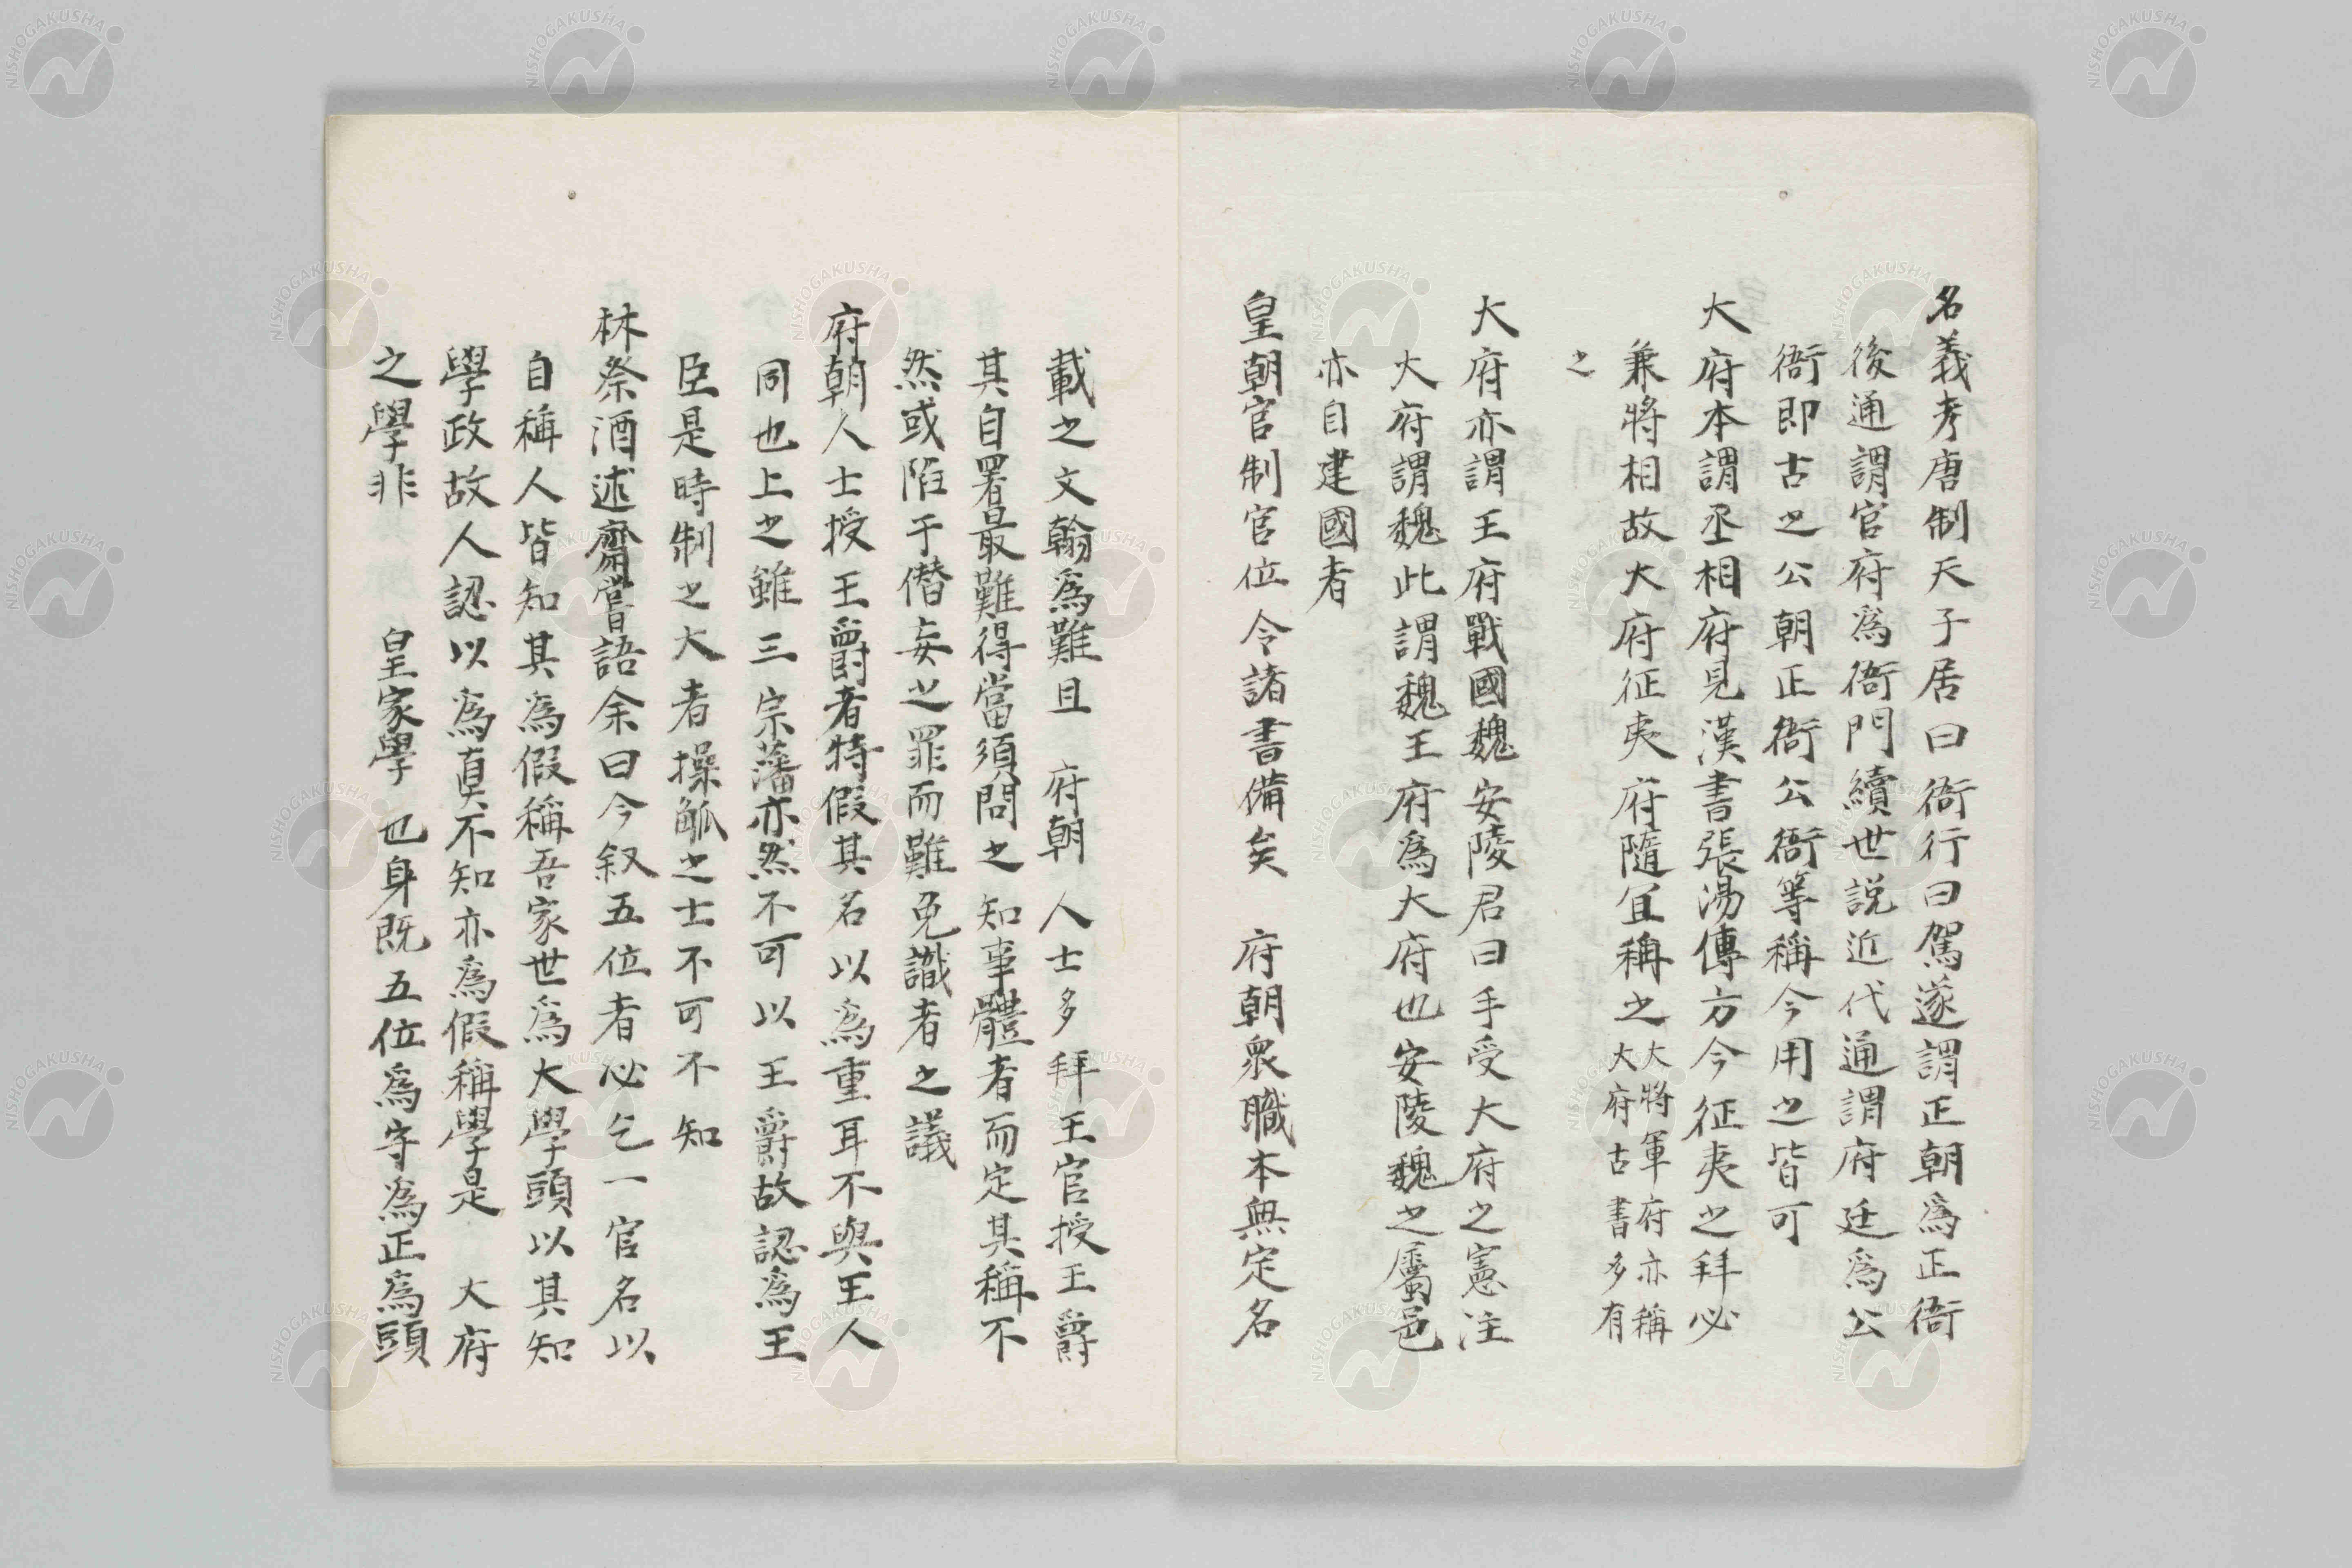 名義考唐制天子居曰衙行曰駕遂謂正朝爲正衙
後通謂官府爲衙門續世説近代通謂府廷爲公
衙即古之公朝正衙公衙等稱今用之皆可
大府本謂丞相府見漢書張湯傳方今征夷之拜必
兼將相故大府征夷府隨宜稱之大將軍府亦稱
大府古書多有
之
大府亦謂王府戰國魏安陵君曰手受大府之憲注
大府謂魏此謂魏王府爲大府也安陵魏之屬邑
亦自建國者
皇朝官制官位令諸書備矣 府朝衆職本無定名
載之文翰爲難且 府朝人士多拜王官授王爵
其自署最難得當須問之知事體者而定其稱不
然或陷于僭妄之罪而難免識者之議
府朝人士授王爵者特假其名以爲重耳不與王人
同也上之雖三宗藩亦然不可以王爵故認爲王
臣是時制之大者操觚之士不可不知
林祭酒述齋嘗語余曰今叙五位者必乞一官名以
自稱人皆知其爲假稱吾家世爲大學頭以其知
學政故人認以爲真不知亦爲假稱學是 大府
之學非 皇家學也身既五位爲守爲正爲頭
NISHOGAKUSHA